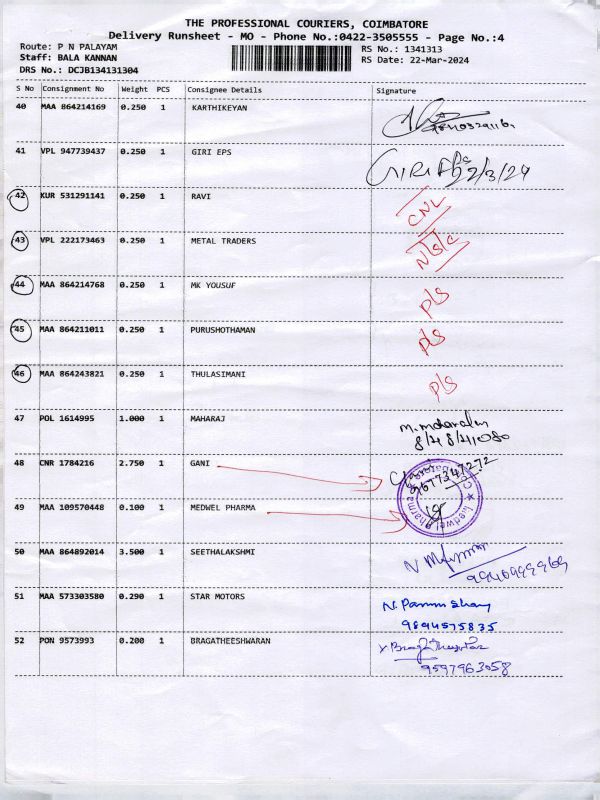 THE PROFESSIONAL COURIERS, COIMBATORE
Delivery Runsheet - MO - Phone No.:0422-3505555 - Page No.:4
Route: P N PALAYAM
Staff: BALA KANNAN
DRS No.: DCJB134131304
RS No.: 1341313
RS Date: 22-Mar-2024
S No Consignment No Weight PCS Consignee Details Signature
40 MAA 864214169 0.250 1 KARTHIKEYAN
41 VPL 947739437 0.250 1 GIRI EPS GIRI EPS 22/3/24
42 KUR 531291141 0.250 1 RAVI CNL
43 VPL 222173463 0.250 1 METAL TRADERS N/S/C
44 MAA 864214768 0.250 1 MK YOUSUF P/S
45 MAA 864211011 0.250 1 PURUSHOTHAMAN P/S
46 MAA 864243821 0.250 1 THULASIMANI P/S
47 POL 1614995 1.000 1 MAHARAJ
48 CNR 1784216 2.750 1 GANI Gani
9677347272
49 MAA 109570448 0.100 1 MEDWEL PHARMA Medwel Pharma
50 MAA 864892014 3.500 1 SEETHALAKSHMI
51 MAA 573303580 0.290 1 STAR MOTORS
9894575835
52 PON 9573993 0.200 1 BRAGATHEESHWARAN
9597963058